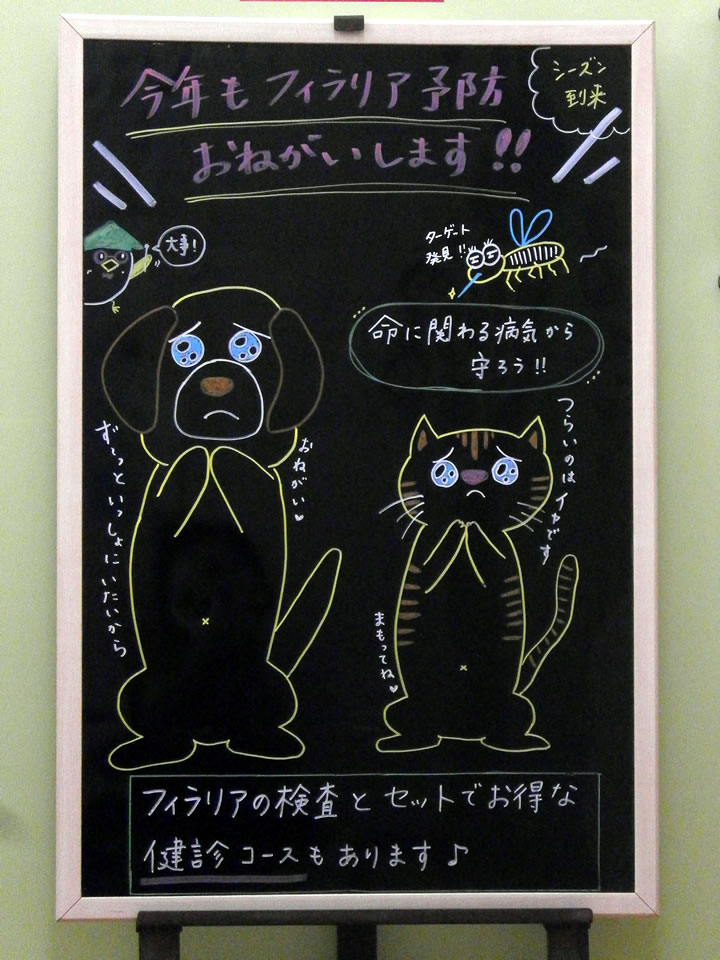 今年もフィラリア予防
おねがいします!!
シーズン
到来
大事!
ターゲット
発見!!
命に関わる病気から
守ろう!!
おねがい♥
ず〜っといっしょにいたいから
つらいのはイヤです
まもってね♥
フィラリアの検査とセットでお得な
健診コースもあります♪